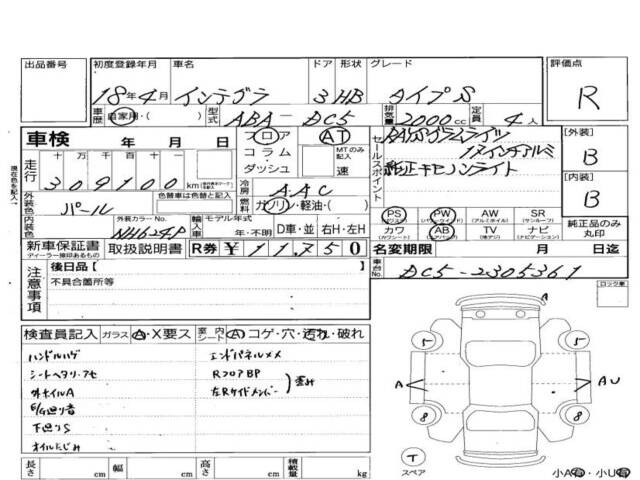 出品番号 初度登録年月 車名 ドア 形状 グレード 評価点
18年4月 インテグラ 3 HB タイプS R
車歴 自家用・( ) 型式 ABA-DC5 排気量 2000cc 定員 4人
車検 年 月 日 フロア AT セールスポイント
コラム・ MTのみ記入 17インチアルミ 【外装】
ダッシュ 速 純正キセノンライト B
現在色を記入
走行 十 万 千 百 十 一
309100km
冷房 AAC 【内装】
外装色 パール 色替車は色替と記入 燃料 ガソリン・軽油・( ) B
内装色 外装カラーNo. NH624P 輸入車 モデル年式 年・不明 D車・並 右H・左H
PS PW AW SR
(パワステ) (パワーウインド) (アルミホイル) (サンルーフ)
カワ AB TV ナビ 純正品のみ丸印
(カワシート) (エアバック) (地デジ) (ナビゲーション)
新車保証書 取扱説明書 R券 ¥11,750 名変期限 月 日迄
ディーラー捺印あるもの
車台No. DC5-2305361
注意事項 後日品【 】 ロック車
不具合箇所等
検査員記入 ガラス A・X要ス 室内シート A コゲ・穴・汚れ・破れ
ハンドルハゲ エンドパネルメメ
シートヘタリ・アセ RフロアBP
外ホイルA 左Rサイドメンバー 歪み
E/G廻り音
下廻りS
オイルにじみ
A
5 5
A AU
8 8
T
スペア
小A有・小U有
長さ cm 幅 cm 高さ cm 積載量 kg